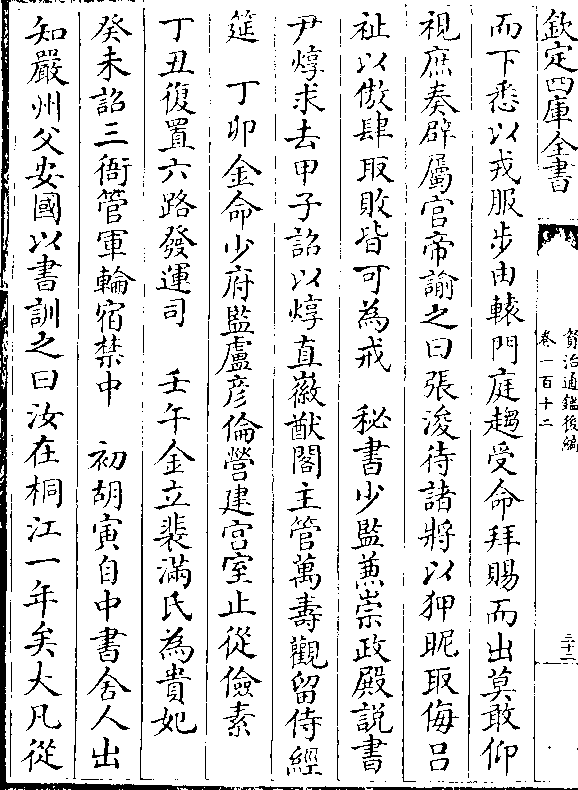 欽定四庫全書
資治通鑑後編
卷一百十二
三十二
而下悉以戎服步由轅門庭趨受命拜賜而出莫敢仰
視庶奏辟屬官帝諭之曰張浚待諸將以狎昵取侮吕
祉以傲肆取敗皆可為戒　秘書少監兼崇政殿說書
尹焞求去甲子詔以焞直徽猷閣主管萬壽觀留侍經
筵　丁卯金命少府監盧彥倫營建宫室止從儉素
丁丑復置六路發運司　壬午金立裴滿氏為貴妃
癸未詔三衙管軍輪宿禁中　初胡寅自中書舍人出
知嚴州父安國以書訓之曰汝在桐江一年矣大凡從